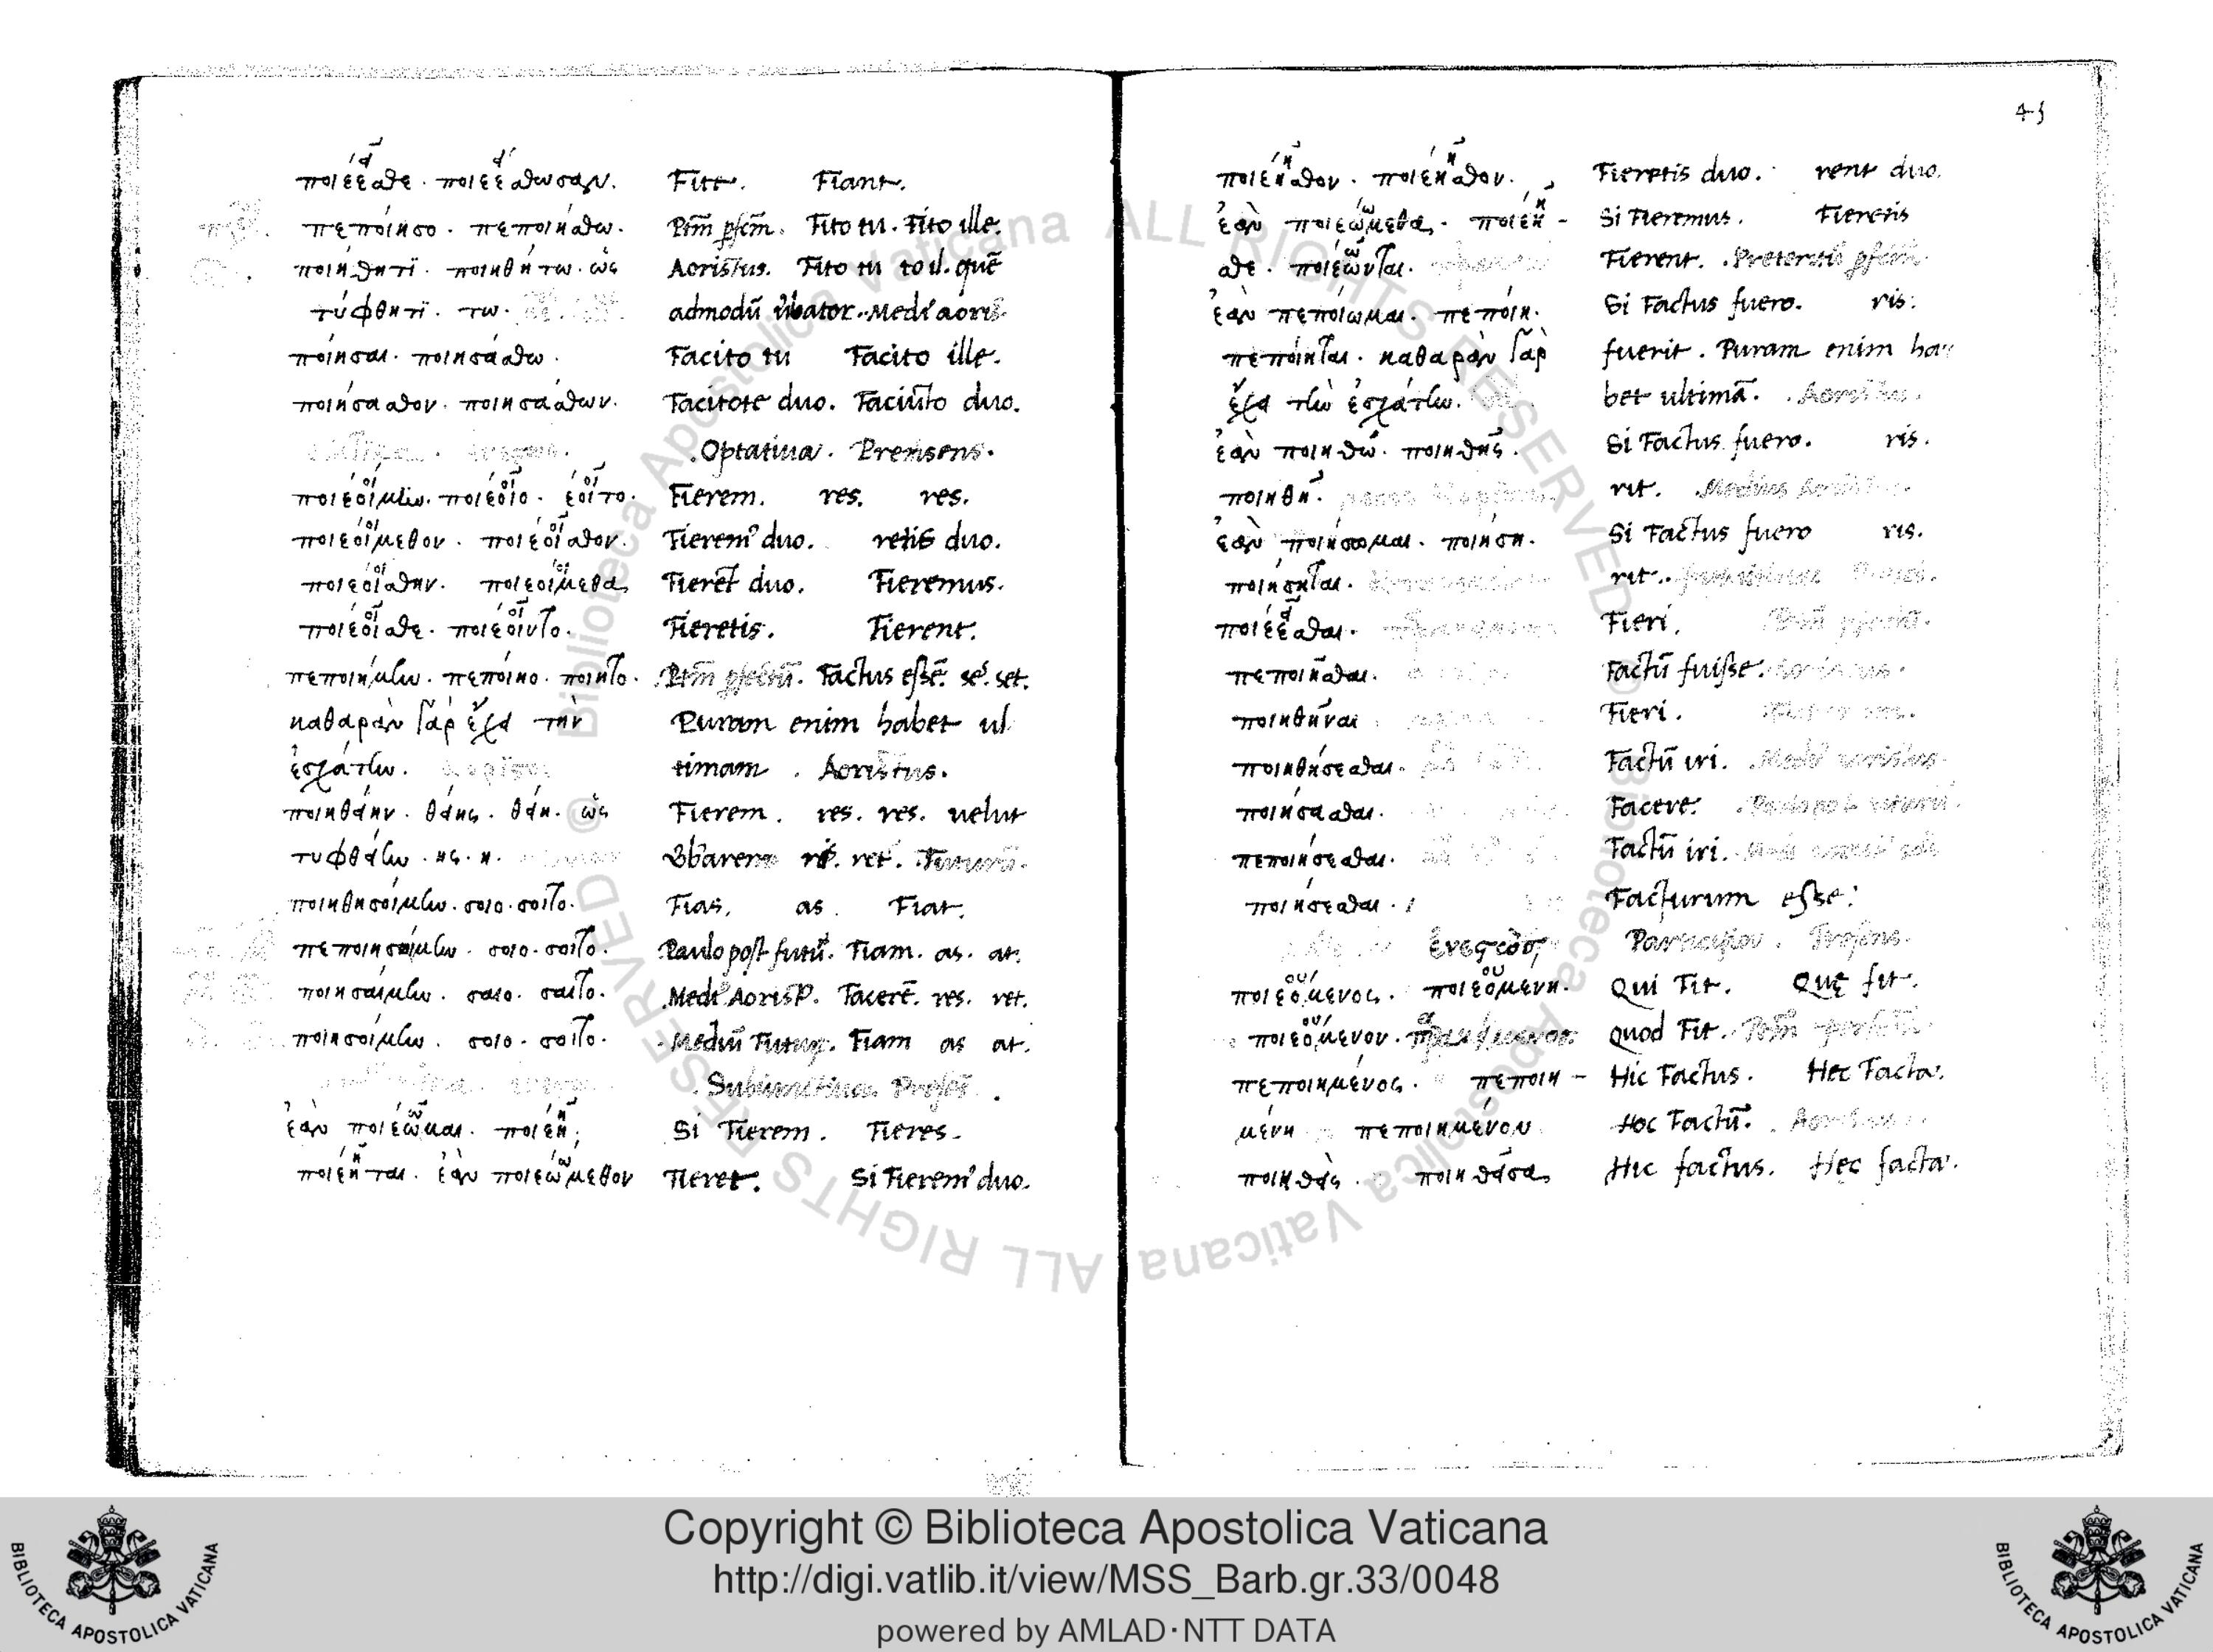 45
ποιέεσθε. ποιεέσθωσαν. Fite. Fiant.
πεποίησο. πεποιήσθω. Ptm̄ pfcm̄. Fito tu. Fito ille.
ποιήθητϊ. ποιηθήτω. ὡς Aoristus. Fito tu to il. quē
τύφθητϊ. τω. admodū v̄bator. Medi' aoris
ποίησαι. ποιησάσθω. Facito tu Facito ille.
ποιήσασθον. ποιησάσθων. Facitote duo. Faciūto duo.
.Optatiua. Prensens.
ποιεοίμην. ποιέοιο. έοιτο. Fierem. res. res.
ποιεοίμεθον. ποιέοισθον. Fierem' duo. retis duo.
ποιεοίσθην. ποιεοίμεθα Fieret̄ duo. Fieremus.
ποιέοισθε. ποιέοιντο. Fieretis. Fierent.
πεποιήμην. πεποίηο. ποίητο. Ptm̄ pfectū. Factus essē. sé. set.
καθαρὰν γὰρ ἔχει τὴν Puram enim habet ul
ἐσχάτην. timam. Aoristus.
ποιηθείην. θείης. θείη. ὡς Fierem. res. res. uelut
τυφθείην. ης. η. Futurū.
ποιηθησοίμην. σοιο. σοιτο. Fias. as. Fiat.
πεποιησοίμην. σοιο. σοιτο. Paulo post futū. Fiam. as. at.
ποιησαίμην. σαιο. σαιτο. Medi' Aorist'. Facerē. res. ret.
ποιησοίμην. σοιο. σοιτο. Mediū Futur. Fiam as at.
ἐὰν ποιέωμαι. ποιέῃ, Si Fierem. Fieres.
ποιέηται. ἐὰν ποιεώμεθον Fieret. Si Fierem' duo.
ποιέησθον. ποιέησθον. Fieretis duo. rent duo.
ἐὰν ποιεώμεθα. ποιέη- Si Fieremus. Fieretis
σθε. ποιέωνται. Fierent. .Preteritū pfcm̄.
ἐὰν πεποίωμαι. πεποίη. Si Factus fuero. ris.
πεποίηται. καθαρὰν γὰρ fuerit. Puram enim ha
ἔχει τὴν ἐσχάτην. bet ultimā. .Aoristus.
ἐὰν ποιηθῶ. ποιηθῇς. Si Factus fuero. ris.
ποιηθῇ. rit. .Medius Aoristus.
ἐὰν ποιήσωμαι. ποιήσῃ. Si Factus fuero ris.
ποιήσηται. rit.
ποιέεσθαι. Fieri.
πεποιῆσθαι. Factū fuisse.
ποιηθῆναι Fieri.
ποιηθήσεσθαι. Factū iri.
ποιήσασθαι. Facere.
πεποιήσεσθαι. Factū iri.
ποιήσεσθαι. Facturum esse:
ἐνεστὼς,
ποιεόμενος. ποιεομένη. Qui Fit. Quę fit.
ποιεόμενον. quod Fit.
πεποιημένος. πεποιη- Hic Factus. Hec Facta.
μένη πεποιημένον Hoc Factū.
ποιηθεὶς. ποιηθεῖσα Hic factus. Hęc facta.
Copyright © Biblioteca Apostolica Vaticana
http://digi.vatlib.it/view/MSS_Barb.gr.33/0048
powered by AMLAD·NTT DATA
BIBLIOTECA APOSTOLICA VATICANA
BIBLIOTECA APOSTOLICA VATICANA
© Biblioteca Apostolica Vaticana ALL RIGHTS RESERVED
© Biblioteca Apostolica Vaticana ALL RIGHTS RESERVED